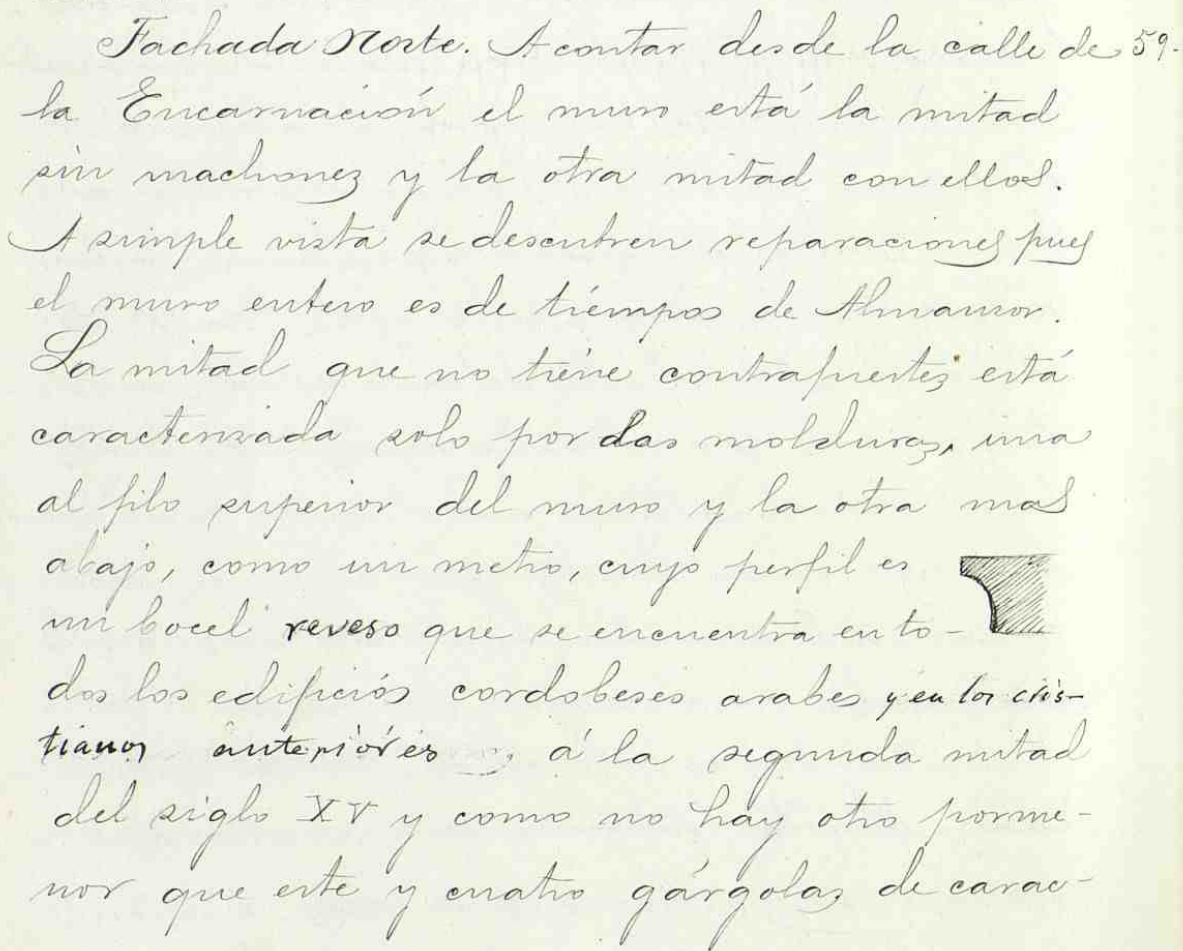 Fachada Norte. A contar desde la calle de 59.
la Encarnación el muro está la mitad
sin machonez y la otra mitad con ellos.
A simple vista se descubren reparaciones pues
el muro entero es de tiempos de Almanzor.
La mitad que no tiene contrafuertez está
caracterizada solo por dos molduraz, una
al filo superior del muro y la otra mas
abajo, como un metro, cuyo perfil es
un bocel reveso que se encuentra en to-
dos los edificios cordobeses arabes y en los cris-
tianos anteriores á la segunda mitad
del siglo XV y como no hay otro porme-
nor que este y cuatro gárgolaz de carac-